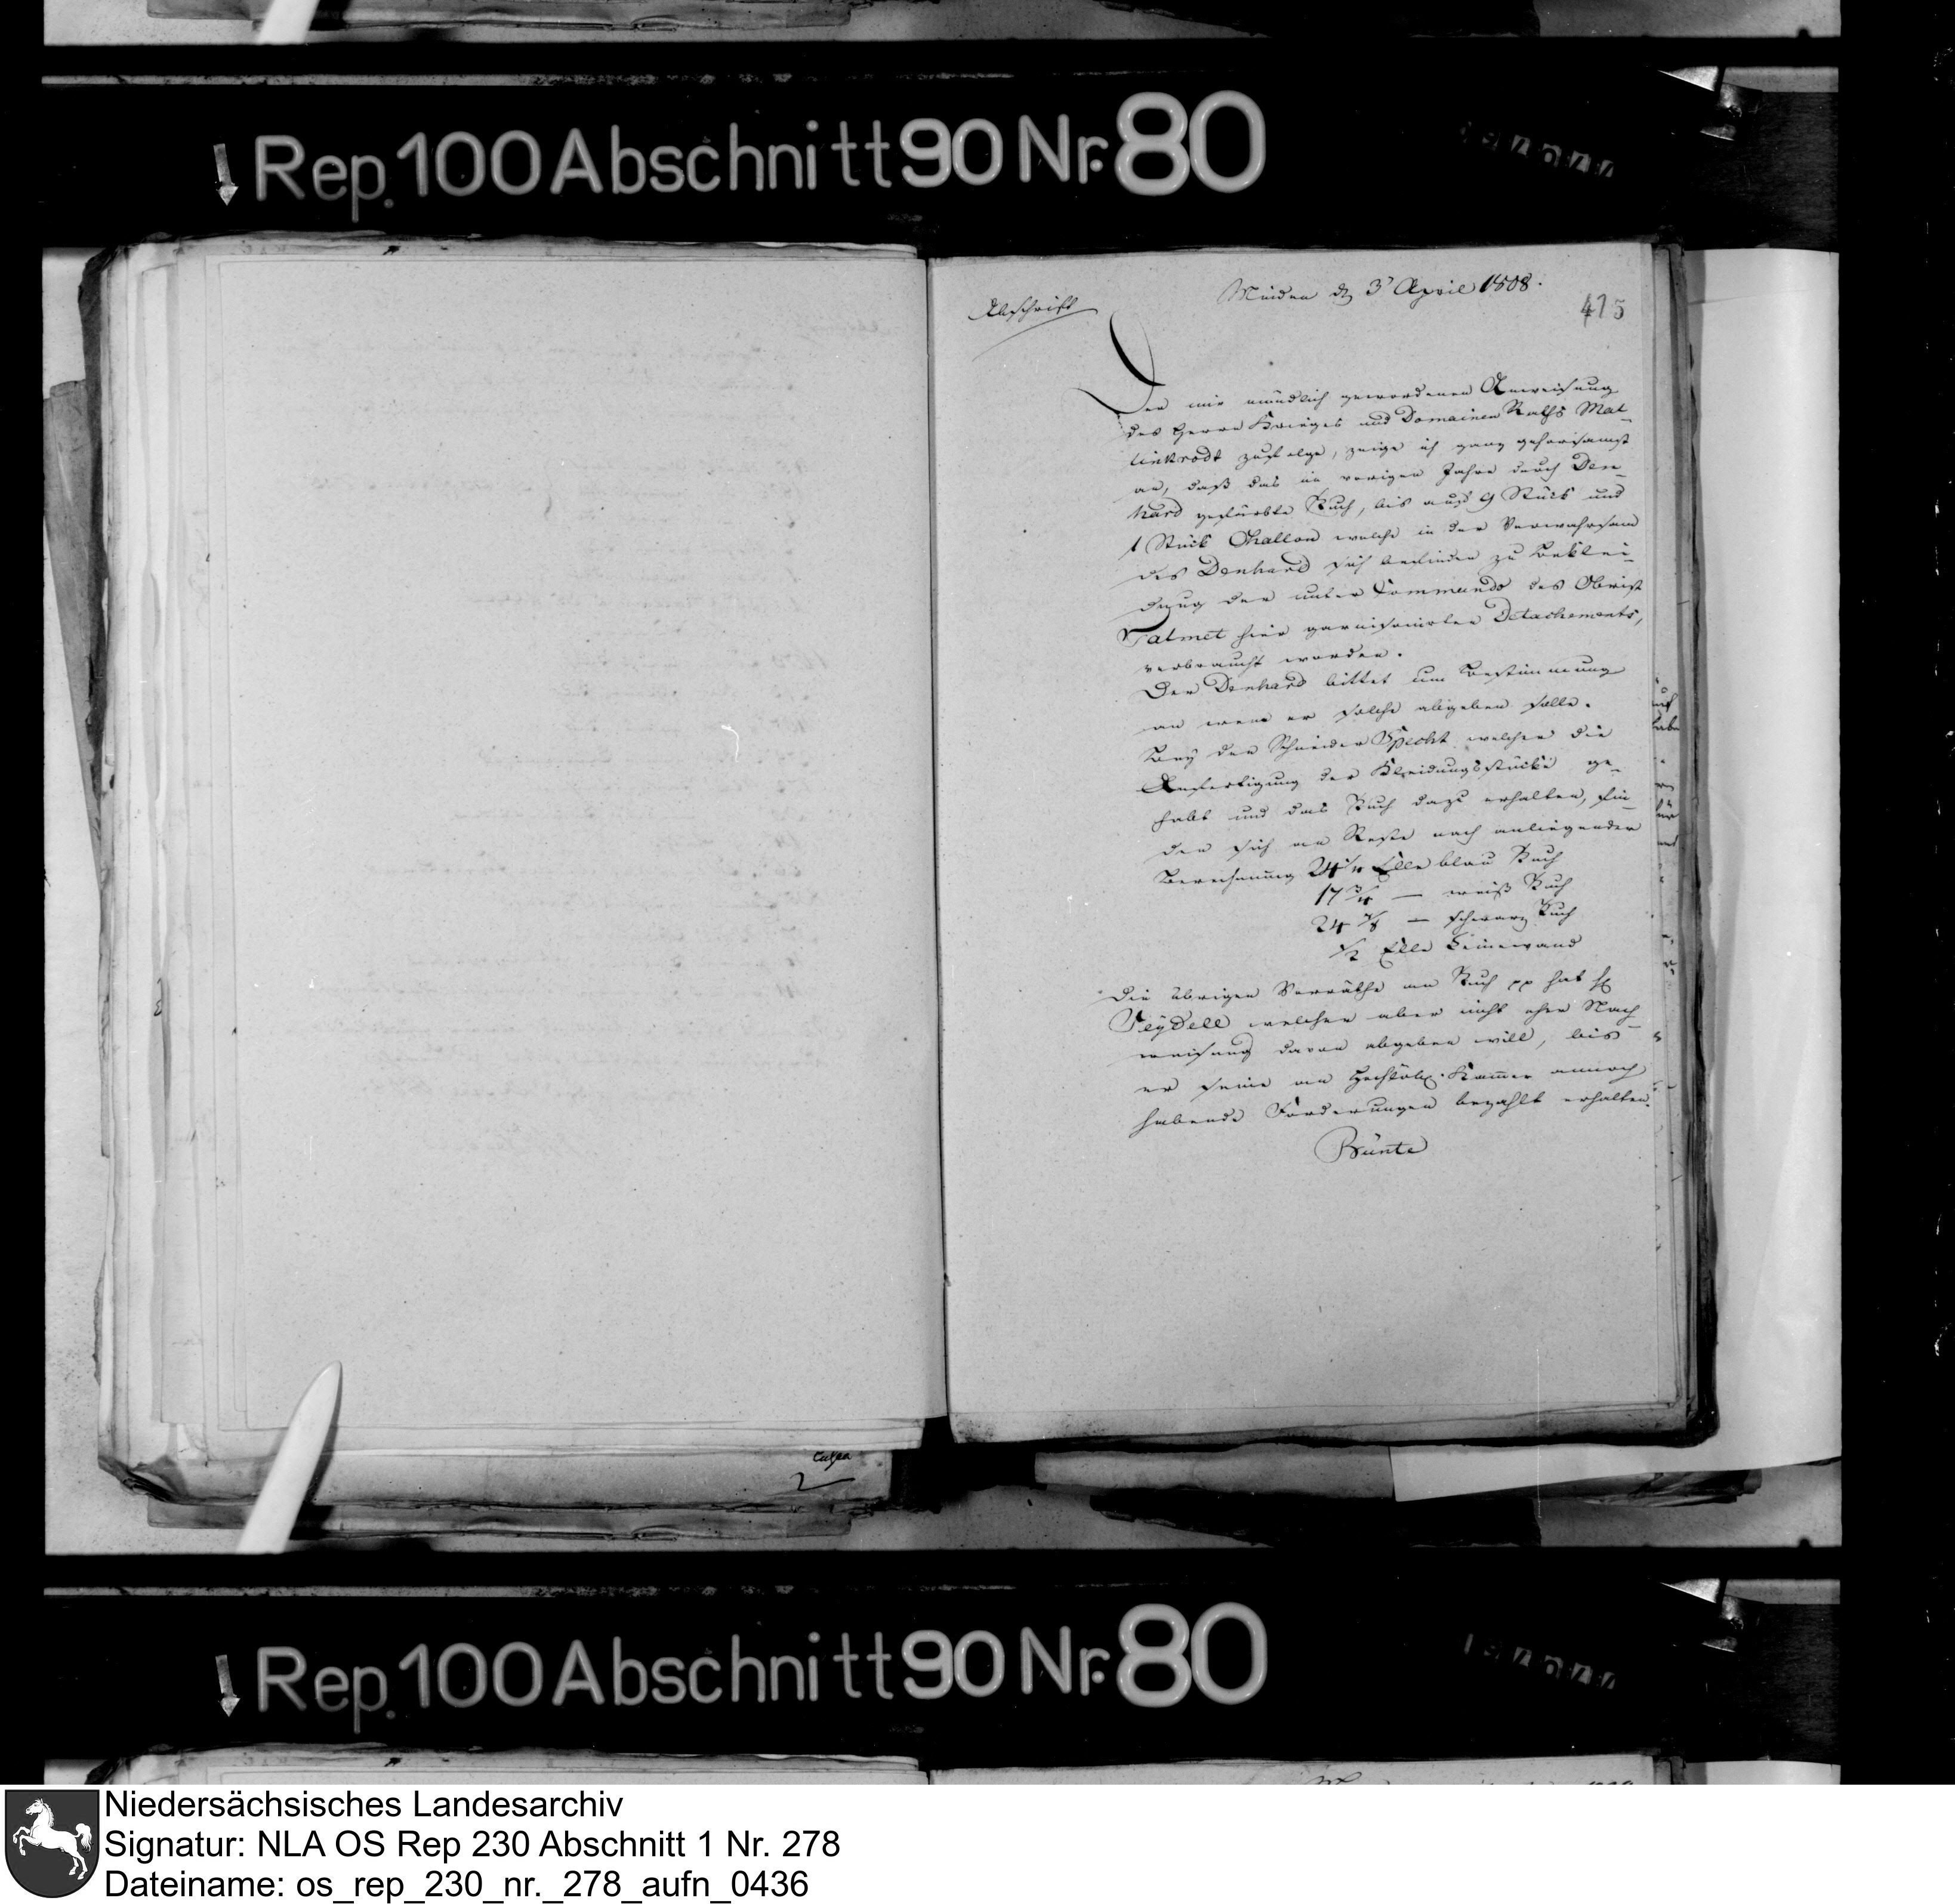 Rep. 100 Abschnitt 90 Nr. 80
Minden d 3 April 1808.
Abschrift
475
Der mir mündlich gewordenen Anweisung
des Herrn Krieges und Domainen Raths Mal-
linkrodt zufolge, zeige ich ganz gehorsamst
an, daß das im vorigen Jahre durch Den-
hard gefärbte Tuch, bis auf 9 Stück und
1 Stück Challon welche in der Verwahrsam
des Denhard sich befinden zu Beklei-
dung der unter Commando des Obrist
Talmet hier garnisonirten Detachements,
verbraucht worden.
Der Denhard bittet um Bestimmung
an wem er solche abgeben solle.
Bey den Schneider Specht welcher die
Anfertigung der Kleidungsstücke ge-
habt und das Tuch dazu erhalten, fin-
den sich an Reste nach anliegender
Berechnung 24 1/4 Elle blau Tuch
17 3/4 — weiß Tuch
24 7/8 — schwarz Tuch
1/2 Elle Leinewand
Die übrigen Vorräthe an Tuch pp hat H
Seydell welcher aber nicht eher Nach-
weisung davon abgeben will, bis
er seine an Hochlöbl. Kammer annoch
habende Forderungen bezahlt erhalten.
Bünte
Rep. 100 Abschnitt 90 Nr. 80
Niedersächsisches Landesarchiv
Signatur: NLA OS Rep 230 Abschnitt 1 Nr. 278
Dateiname: os_rep_230_nr._278_aufn_0436